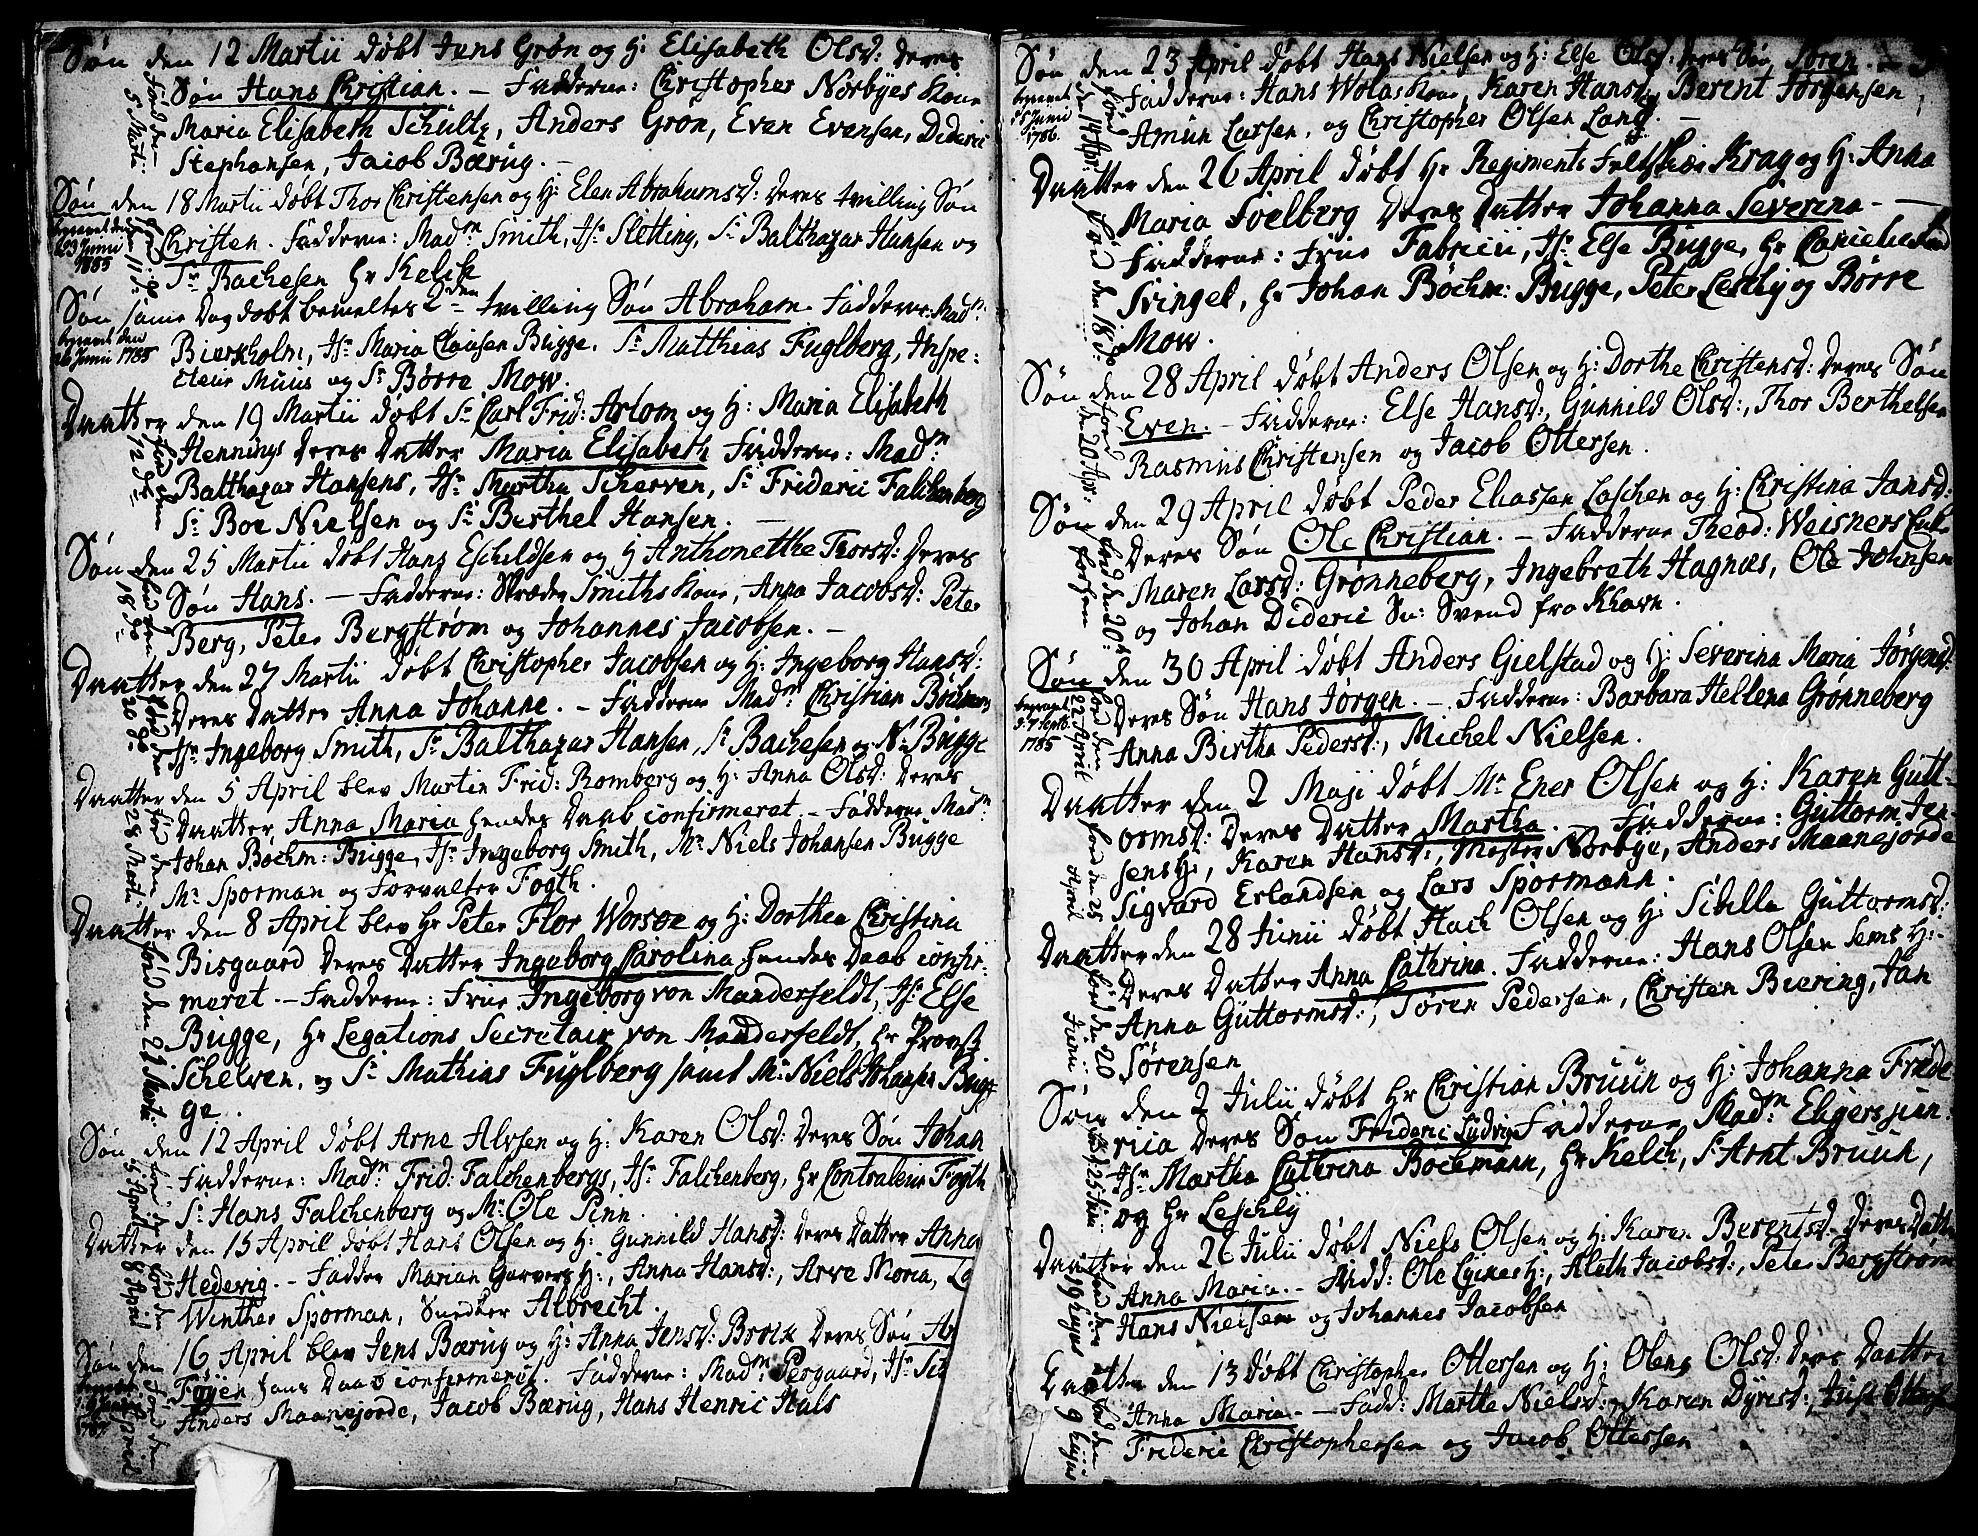 Søn den 12 Martii døbt Jens Grøn og H: Elisabeth Olsd: deres
Søn Hans Christian. – Fadderne: Christopher Norbyes Kone
Maria Elisabeth Schultz, Anders Grøn, Even Evensen, Dideric
Stephansen, Jacob Bærug. –
født den
5 Martii
Søn den 18 Martii døbt Thor Christensen og H: Elen Abrahamsd: deres tvilling Søn
Christen. Fadderne: Madm Smith, Jfr Sletting, Sr Balthazar Hansen og
Sr Bachesen Hr Kelck
begravet den
23 Junii
1785
Søn samme Dag døbt bemeltes 2den tvilling Søn Abraham. Fadderne: Madm:
Bierkholm, Jfr Maria Clausen Bugge. Sr Matthias Fuglberg, Inspe-
cteur Muus og Sr Børre Mow.
begravet den
Junii 1785
Daatter den 19 Martii døbt Sr Carl Frid: Arlom og H: Maria Elisabeth
Hennings deres Datter Maria Elisabeth Fadderne: Madm
Balthazar Hansens, Jfr Martha Scherven, Sr Frideric Falchenberg
Sr Boe Nielsen og Sr Berthel Hansen. –
født den
12 do
Søn den 25 Martii døbt Hans Eschildsen og H Anthonetthe Thorsd: deres
Søn Hans. – Fadderne: Skræder Smiths Kone, Anna Jacobsd: Peter
Berg, Peter Bergstrøm og Johannes Jacobsen. –
født den
18 do
Daatter den 27 Martii døbt Christopher Jacobsen og H: Ingeborg Hansd:
deres Datter Anna Johanne. – Fadderne Madm Christian Böchmans
Jfr Ingeborg Smith, Sr Balthazar Hansen, Sr Bachesen og N: Bugge
født den
20 do
Daatter den 5 April blev Martin Frid: Romberg og H: Anna Olsd: deres
Daatter Anna Maria hendes Daab confirmeret. – Fadderne Madm:
Johan Böchm: Bugge, Jfr Ingeborg Smith, Mr Niels Johansen Bugge
Mr Sporman og Forvalter Fogth.
født den
28 Martii
Daatter den 8 April blev Hr Peter Flor Worsøe og H: Dorthea Christina
Bisgaard deres Datter Ingeborg Carolina hendes Daab confir-
meret. – Fadderne: Frue Ingeborg von Manderfeldt, Jfr Else
Bugge, Hr Legations Secretair von Manderfeldt, Hr Provst
Schelven, og Sr Mathias Fuglberg samt Mr Niels Johansen Bug-
ge.
født den 21 Martii
Søn den 12 April døbt Arne Alvsen og H: Karen Olsd: deres Søn Johan
Fadderne: Madm Frid: Falchenbergs, Jfr Falchenberg, Hr Contraleur Fogth
Sr Hans Falchenberg og Mr Ole Sinn.
født den
5 April
Datter den 15 April døbt Hans Olsen og H: Gunnild Hansd: deres Datter Anna
Hedevig. – Fadder Marian Garvers H:, Anna Hansd:, Arve Moria,
Winther Sporman, Snedker Albrecht.
født den
8 April
Søn den 16 April blev Jens Bærug og H: Anna Jensd: Broch deres Søn
Føyen hans Daab confirmeret. Fadderne: Madm: Pergaard, Jfr
Anders Maanejorde, Jacob Bærug, Hans Henric Hals
født den
April
Søn den 23 April døbt Hans Nielsen og H: Else Olsd: deres Søn Søren. –
Fadderne: Hans Wolas Kone, Karen Hansd:, Berent Jørgensen
Amun Larsen, og Christopher Olsen Lang. –
begravet
d 5 Junii
1786.
født
den 14 Apr:
Daatter den 26 April døbt Hr Regiments Feltskiær Krag og H: Anna
Maria Soelberg deres Datter Johanna Severina. –
Fadderne: Frue Fabricii, Jfr Else Bugge, Hr
Svingel, Hr Johan Böchm: Bugge, Peter Leschly og Børre
Mow.
født den 18 do
Søn den 28 April døbt Anders Olsen og H: Dorthe Christensd: deres Søn
Even. – Fadderne: Else Hansd:, Gunnild Olsd:, Thor Berthelsen
Rasmus Christensen og Jacob Ottersen.
født
den 20 Apr:
Søn den 29 April døbt Peder Eliassen Laschen og H: Christina Jansd:
deres Søn Ole Christian. – Fadderne Theod: Weisners Enke
Maren Larsd: Grønneberg, Ingebreth Hagnæs, Ole Johnsen
og Johan Dideric Sn: Svend fra Khavn.
født den 20de
Søn den 30 April døbt Anders Gielstad og H: Severina Maria Jörgensd:
deres Søn Hans Jørgen. – Fadderne: Barbara Hellena Grønneberg
Anna Birtha Pedersd:, Michel Nielsen.
begravet
d. 7 Septb.
1785
født den
22 April
Daatter den 2 Maji døbt Mr Ener Olsen og H: Karen Gutt-
ormsd: deres Datter Martha. – Fadderne: Guttorm Jen-
sens H:, Karen Hansd:, Mester Norbye, Anders Maanejorde
Sigvard Erlandsen og Lars Spormann.
født den 25
April
Daatter den 28 Junii døbt Hach Olsen og H: Sidelle Guttormsd:
deres Datter Anna Cathrina. Fadderne: Hans Olsen Sems H:
Anna Guttormsd:, Søren Pedersen, Christen Biering, Jan
Sørensen
født den 20
Junii
Søn den 2 Julii døbt Hr Christian Bruun og H: Johanna Fride-
rica deres Søn Frideric Ludvig Fadderne Madm
Jfr Martha Cathrina Bochmann, Hr Kelck, Sr Arnt Bruun,
og Hr Leschly
født d: 25 Junii
Daatter den 26 Julii døbt Niels Olsen og H: Karen Berentsd: deres Datter
Anna Maria. – Fadd: Ole Lyckes H:, Aleth Jacobsd:, Peter Bergstrøm
Hans Nielsen og Johannes Jacobsen
født den
19 hujus
Daatter den 13 døbt Christopher Ottersen og H: Olena Olsd: deres Daatter
Anna Maria. – Fadd: Marthe Nielsd:, Karen Dyresd:, Just Ottersen
Frideric Christophersen og Jacob Ottersen
født den
9 hujus